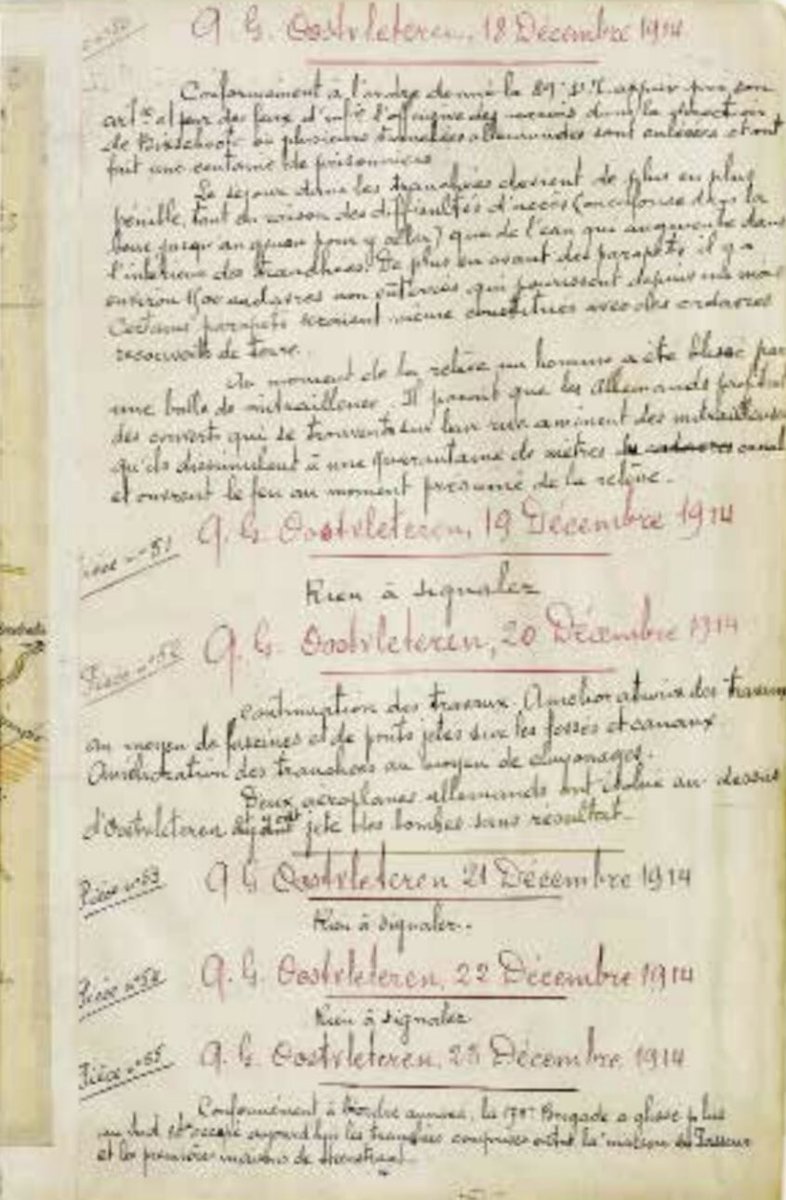 Q. G. Oostvleteren, 18 Décembre 1914
Conformément à l'ordre donné la 89e D.T. appuie par son
artie et par des feux d'infie l'offensive des zouaves dans la direction
de Bixschoote où plusieurs tranchées allemandes sont enlevées et ont
fait une centaine de prisonniers
Le séjour dans les tranchées devient de plus en plus
pénible, tant en raison des difficultés d'accès (on enfonce dans la
boue jusqu'au genou pour y aller) que de l'eau qui augmente dans
l'intérieur des tranchées. De plus en avant des parapets il y a
environ 1500 cadavres non enterrés qui pourrissent depuis un mois
Certains parapets seraient même constitués avec des cadavres
recouverts de terre.
Au moment de la relève un homme a été blessé par
une balle de mitrailleuse. Il paraît que les Allemands profitent
des couverts qui se trouvent sur leur rive amènent des mitrailleuses
qu'ils dissimulent à une quarantaine de mètres du canal
et ouvrent le feu au moment présumé de la relève.
Pièce n° 51
Q. G. Oostvleteren, 19 Décembre 1914
Rien à signaler
Pièce n° 52
Q. G. Oostvleteren, 20 Décembre 1914
Continuation des travaux. Améliorations des travaux
au moyen de fascines et de ponts jetés sur les fossés et canaux
Amélioration des tranchées au moyen de clayonages.
Deux aéroplanes allemands ont évolué au dessus
d'Oostvleteren et y ont jeté des bombes sans résultat.
Pièce n° 53
Q G Oostvleteren 21 Décembre 1914
Rien à signaler.
Pièce n° 54
Q. G. Oostvleteren, 22 Décembre 1914
Rien à signaler
Pièce n° 55
Q. G. Oostvleteren, 23 Décembre 1914
Conformément à l'ordre la 178e Brigade a glissé plus
au Sud et occupe aujourd'hui les tranchées comprises entre la maison du Passeur
et les premières maisons de Steenstraat.